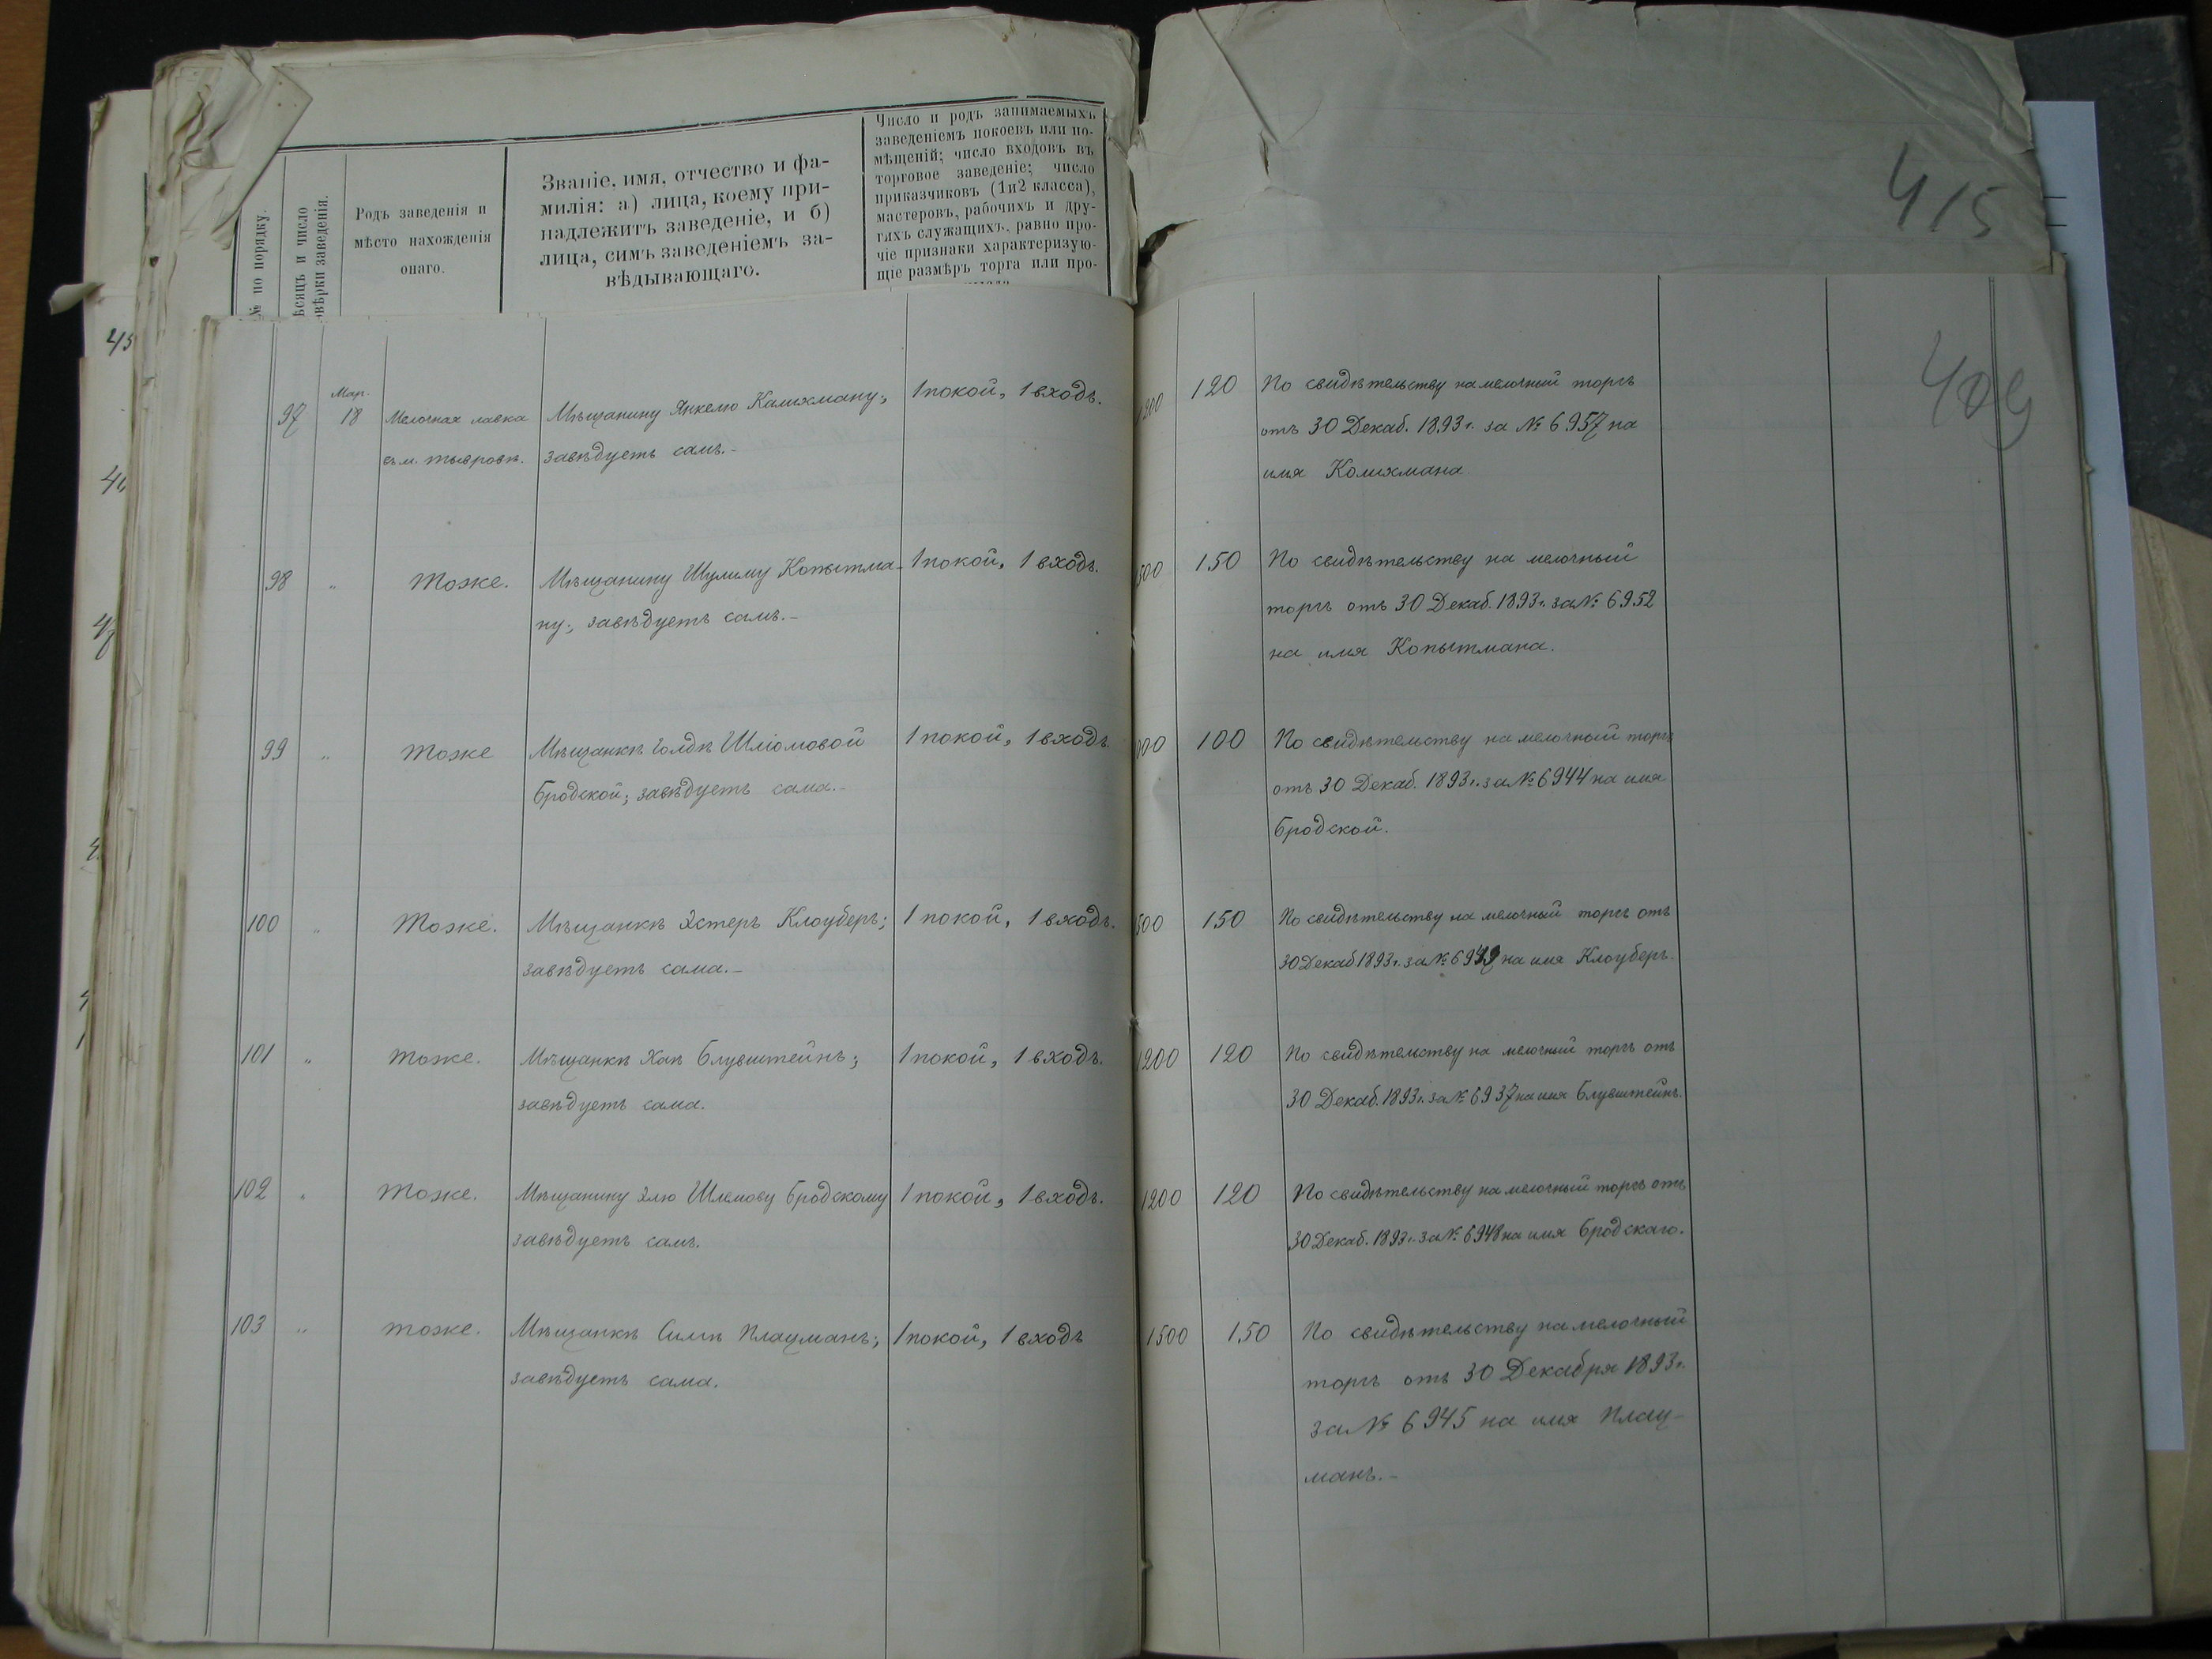 № по порядку.
ѣсяцъ и число
овѣрки заведенія.
Родъ заведенія и
мѣсто нахожденія
онаго.
Званіе, имя, отчество и фа-
милія: а) лица, коему при-
надлежитъ заведеніе, и б)
лица, симъ заведеніемъ за-
вѣдывающаго.
Число и родъ занимаемыхъ
заведеніемъ покоевъ или по-
мѣщеній; число входовъ въ
торговое заведеніе; число
приказчиковъ (1 и 2 класса),
мастеровъ, рабочихъ и дру-
гихъ служащихъ, равно про-
чіе признаки характеризую-
щіе размѣръ торга или про-
415
409
Мар.
97 18 Мелочная лавка Мѣщанину Янкелю Калихману, 1 покой, 1 входъ. 1200 120 По свидѣтельству на мелочный торгъ
въ м. Тывровѣ. завѣдуетъ самъ.- отъ 30 Декаб. 1893 г. за № 6957 на
имя Колихмана
98 " Тоже. Мѣщанину Шулиму Копытма- 1 покой, 1 входъ. 500 150 По свидѣтельству на мелочный
ну; завѣдуетъ самъ.- торгъ отъ 30 Декаб. 1893 г. за № 6952
на имя Копытмана.
99 " Тоже Мѣщанкѣ Голдѣ Шліомовой 1 покой, 1 входъ. 000 100 По свидѣтельству на мелочный торгъ
Бродской; завѣдуетъ сама.- отъ 30 Декаб. 1893 г. за № 6944 на имя
Бродской.
100 " Тоже. Мѣщанкѣ Эстеръ Клоуберъ; 1 покой, 1 входъ. 500 150 По свидѣтельству на мелочный торгъ отъ
завѣдуетъ сама.- 30 Декаб 1893 г. за № на имя Клоуберъ.
101 " Тоже. Мѣщанкѣ Хаѣ Блувштейнъ; 1 покой, 1 входъ. 1200 120 По свидѣтельству на мелочный торгъ отъ
завѣдуетъ сама. 30 Декаб. 1893 г. за № 6937 на имя Блувштейнъ.
102 " Тоже. Мѣщанину Элю Шлемову Бродскому 1 покой, 1 входъ. 1200 120 По свидѣтельству на мелочный торгъ отъ
завѣдуетъ самъ. 30 Декаб. 1893 г. за № 6948 на имя Бродскаго.
103 " Тоже. Мѣщанкѣ Симѣ Плауманъ; 1 покой, 1 входъ 1500 150 По свидѣтельству на мелочный
завѣдуетъ сама. торгъ отъ 30 Декабря 1893 г.
за № 6945 на имя Плау-
манъ.-